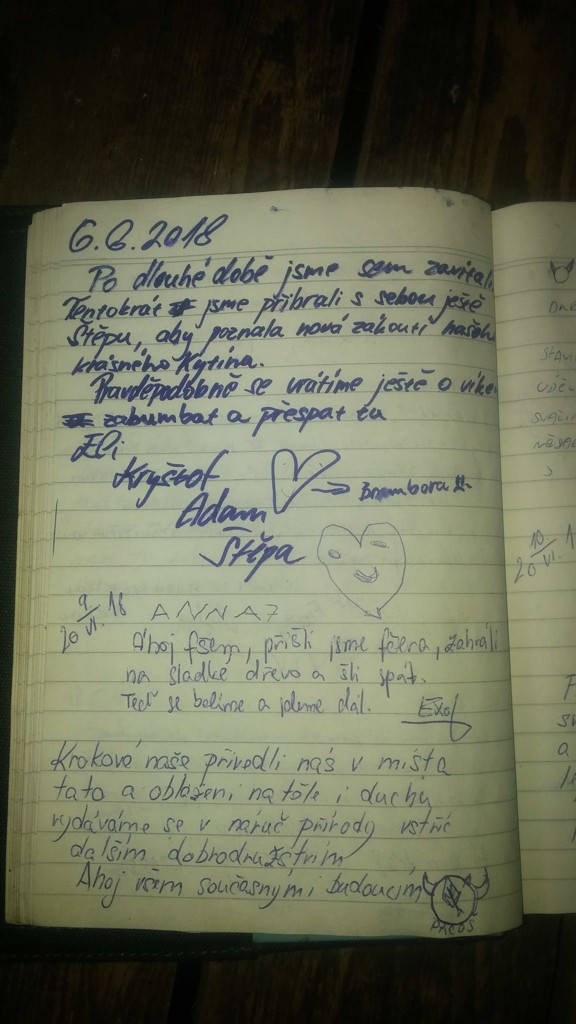 6.6.2018
Po dlouhé době jsme sem zavítali
Tentokrát jsme přibrali s sebou ještě
Štěpu, aby poznala nová zákoutí našeho
krásného Kytína.
Pravděpodobně se vrátíme ještě o víke
zabumbat a přespat tu
Eli
Kryštof
Adam
Štěpa
Brambora
9/VI. 2018 ANNA7
Ahoj fšem, přišli jsme fčera, zahráli
na sladké dřevo a šli spát.
Teď se balíme a jdeme dál.
Krokové naše přivedli nás v místa
tato a oblaženi na těle i duchu
vydáváme se v náruč přírody vstříc
dalším dobrodružstvím
Ahoj všem současným i budoucím
10/VI. 20